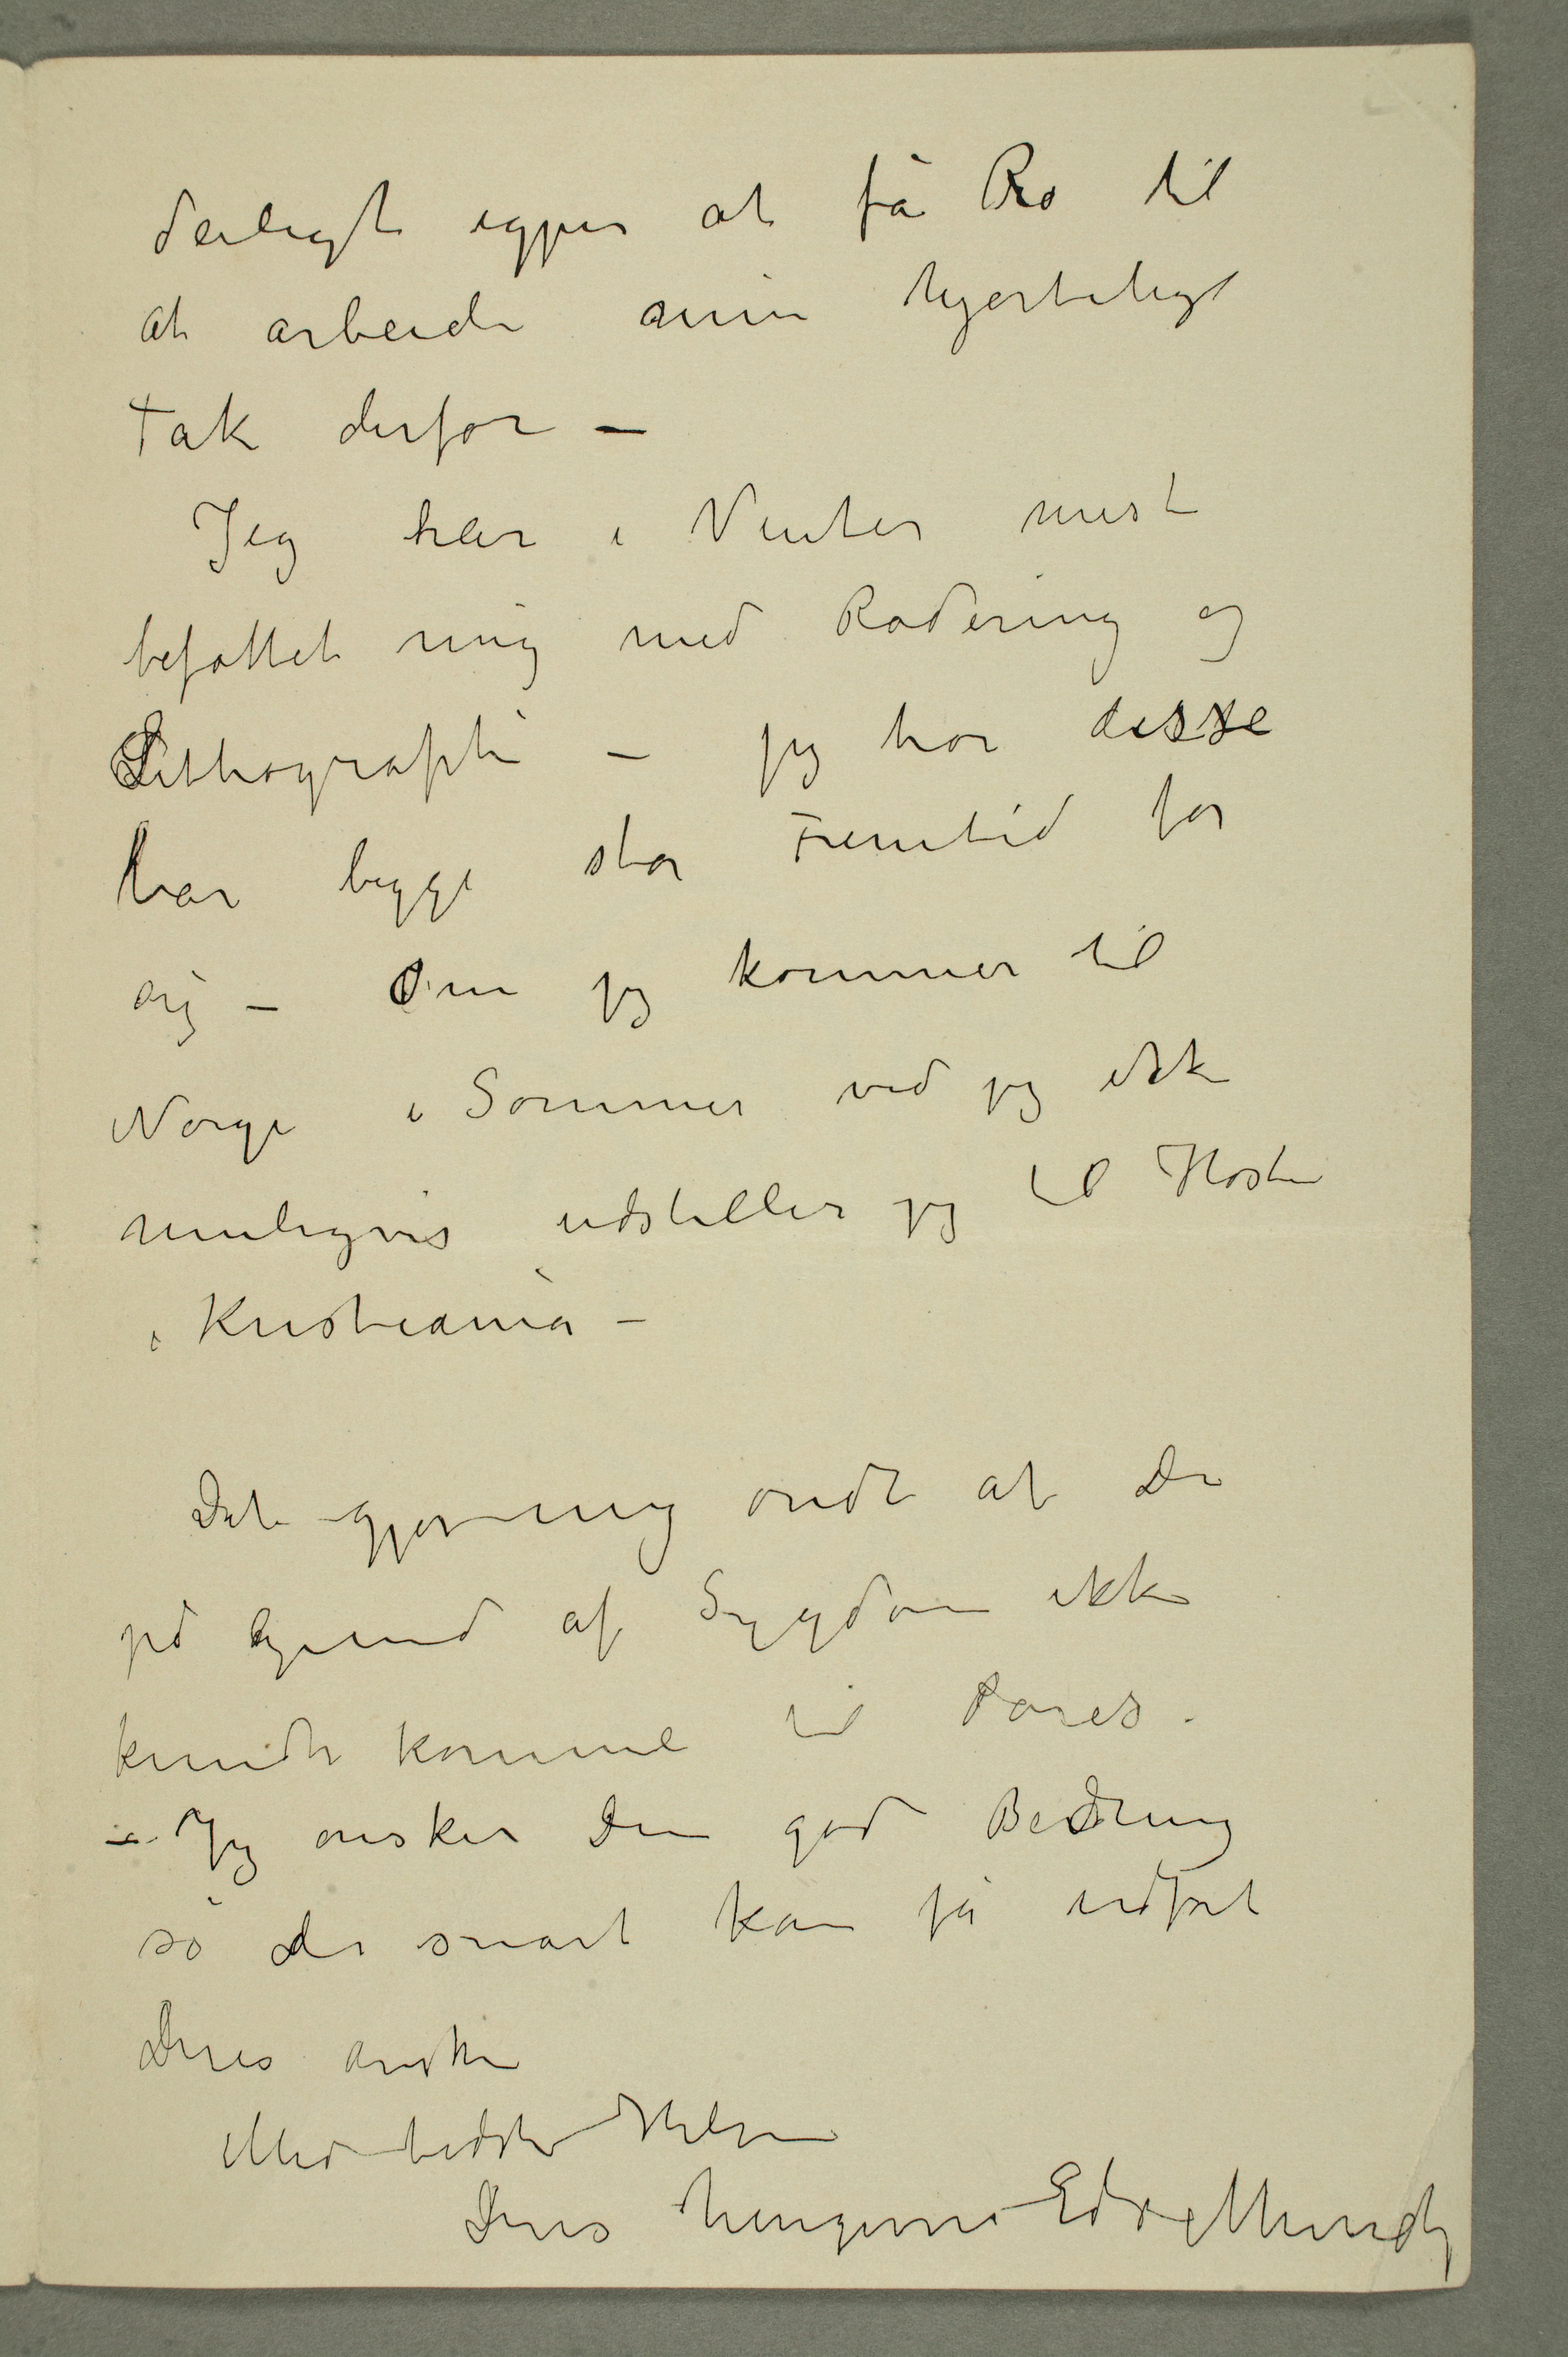 deiligt igjen at få Ro til
at arbeide min hjerteligt
tak derfor –
Jeg har i Vinter mest
befattet mig med Radering og
Lithografi – jeg tror disse
har begge stor Fremtid for
sig – Om jeg kommer til
Norge i Sommer ved jeg ikke
muligvis udstiller jeg til Høsten
i Kristiania –
Det gjør mig ondt at De
på Grund af Sygdom ikke
kunde komme til Paris.
– Jeg ønsker Dem god Bedring
så De snart kan få udført
Deres ønske
Med bedste Hilsen
Deres hengivne Edv. Munch